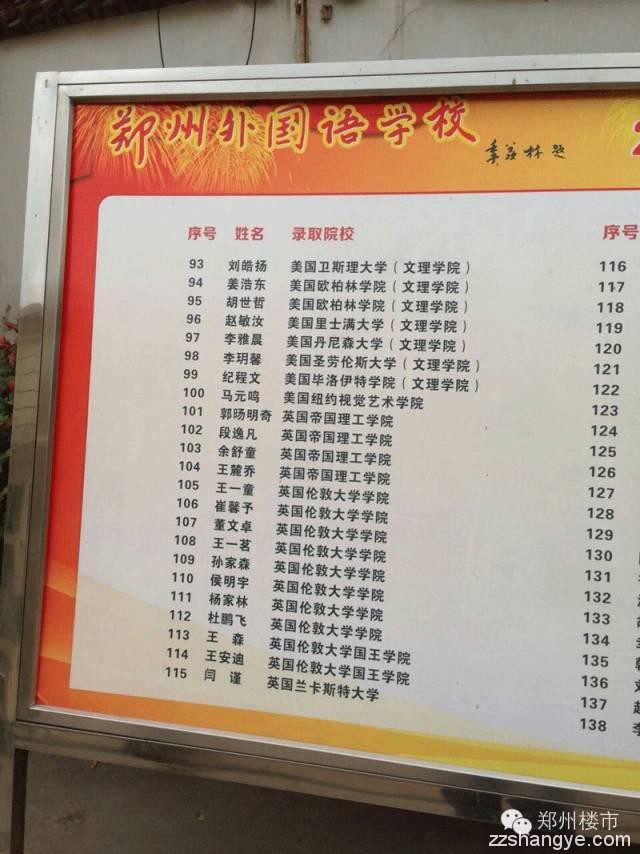 郑州外国语学校 季羡林题
序号 姓名 录取院校 序号
93 刘皓扬 美国卫斯理大学（文理学院） 116
94 姜浩东 美国欧柏林学院（文理学院） 117
95 胡世哲 美国欧柏林学院（文理学院） 118
96 赵敏汝 美国里士满大学（文理学院） 119
97 李雅晨 美国丹尼森大学（文理学院） 120
98 李玥馨 美国圣劳伦斯大学（文理学院） 121
99 纪程文 美国毕洛伊特学院（文理学院） 122
100 马元鸣 美国纽约视觉艺术学院 123
101 郭旸明奇 英国帝国理工学院 124
102 段逸凡 英国帝国理工学院 125
103 余舒童 英国帝国理工学院 126
104 王麓乔 英国帝国理工学院 127
105 王一童 英国伦敦大学学院 128
106 崔馨予 英国伦敦大学学院 129
107 董文卓 英国伦敦大学学院 130
108 王一茗 英国伦敦大学学院 131
109 孙家森 英国伦敦大学学院 132
110 侯明宇 英国伦敦大学学院 133
111 杨家林 英国伦敦大学学院 134
112 杜鹏飞 英国伦敦大学学院 135
113 王 森 英国伦敦大学国王学院 136
114 王安迪 英国伦敦大学国王学院 137
115 闫 谨 英国兰卡斯特大学 138
郑州楼市
zzshangye.com